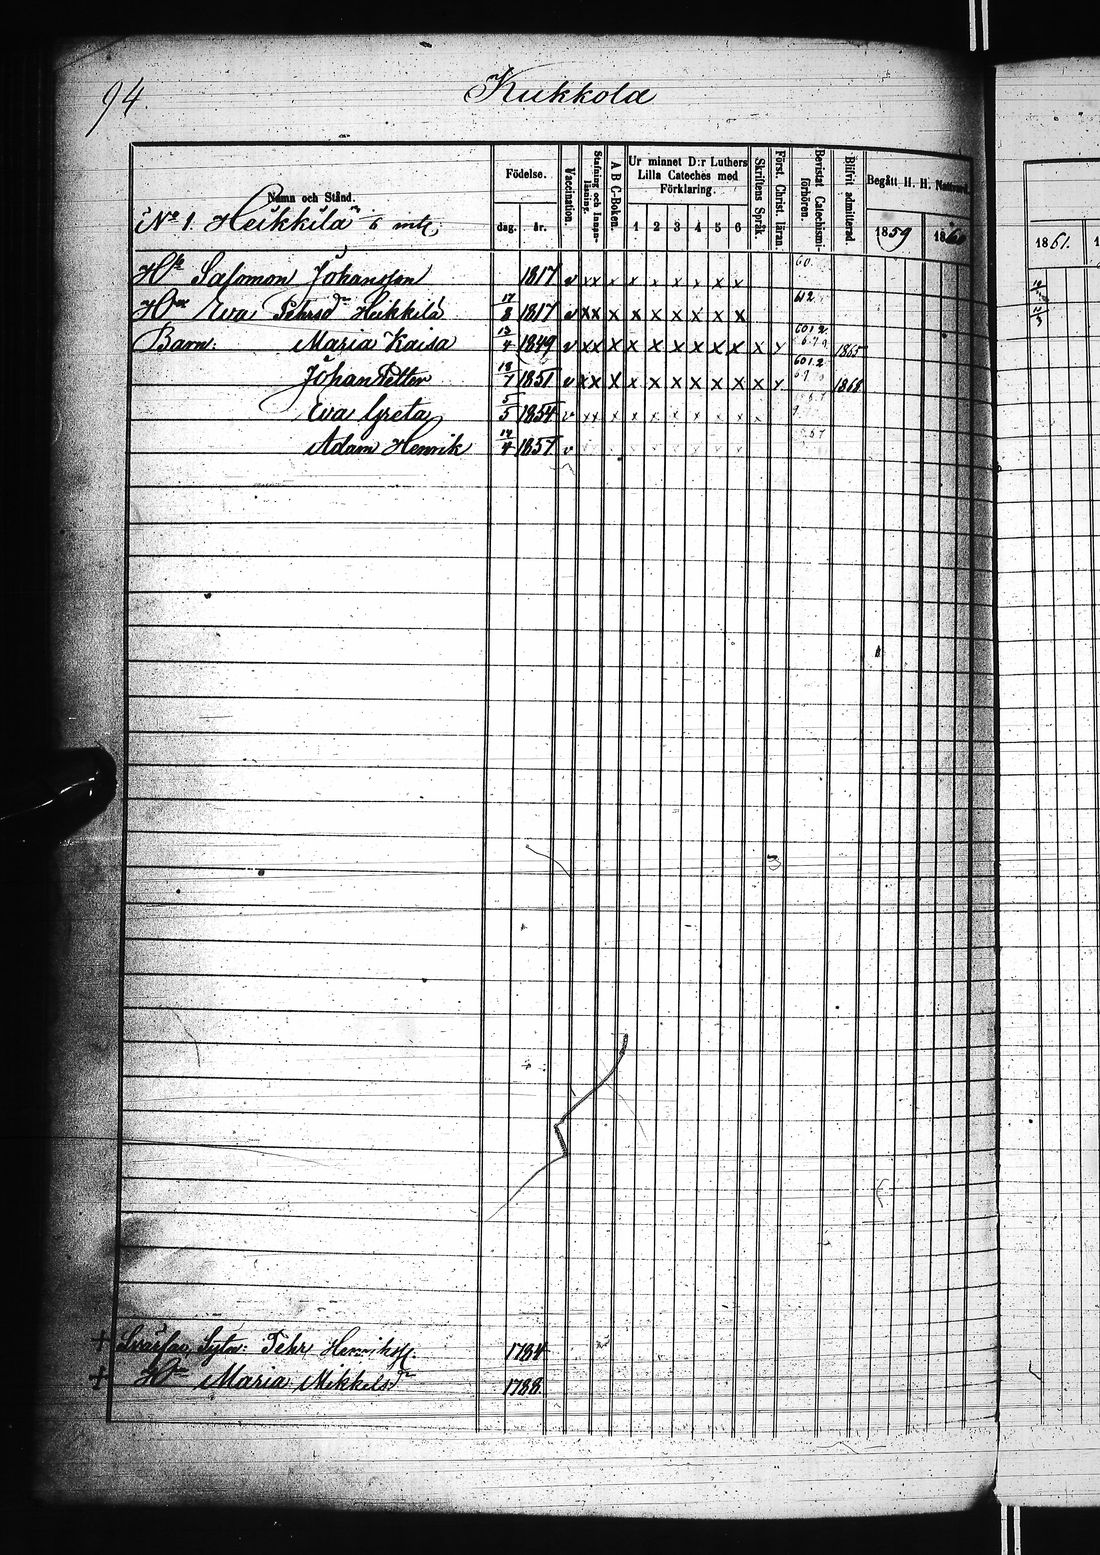 94
Kukkola
Namn och Stånd. Födelse. dag. år. Vaccination. Stafning och Innanläsning. A B C-Boken. Ur minnet D:r Luthers Lilla Cateches med Förklaring. 1 2 3 4 5 6 Skriftens Språk. Först. Christ. läran. Bevistat Catechismiförhören. Blifvit admitterad Begått H. H. Nattvard. 1859 1860 1861.
"No 1. Heikkilä"
Salomon Johansson 1817 v xx x x x x x x x 60.
Eva Pehrsdr Heikkilä 17/8 1817 v xx x x x x x x x 612
Barn: Maria Kaisa 13/4 1849 v xx x x x x x x x x y 6012 1865
Johan Petter 18/1 1851 v xx x x x x x x x x y 6012 1868
Eva Greta 5/5 1854 v xx x x x x x x x x
Adam Henrik 14/4 1857 v
+ Pehr 1784
+ Maria Mikkelsdr 1788